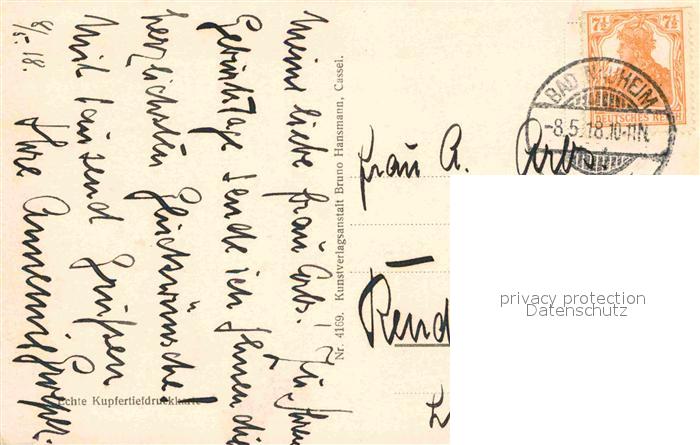 8/5. 18.
Meine liebe Frau Arbs! Zu Ihrem
Geburtstage sende ich Ihnen die
herzlichsten Glückwünsche!
Mit tausend Grüßen
Ihre Annemie
Echte Kupfertiefdruckkarte
Nr. 4169. Kunstverlagsanstalt Bruno Hansmann, Cassel.
7½ 7½
DEUTSCHES REICH
BAD NAUHEIM
-8.5.18.10-11N.
Frau A. Arbs
Rend
privacy protection
Datenschutz